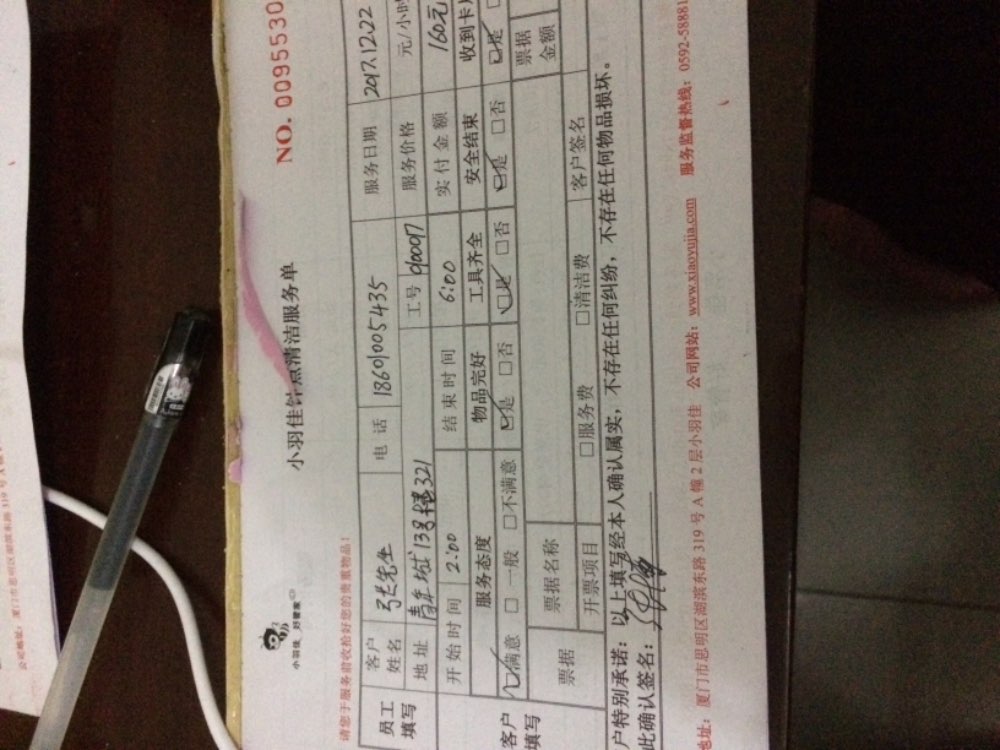 NO. 0095530
小羽佳钟点清洁服务单
小羽佳 好管家
请您于服务前收拾好您的贵重物品!
员工填写 客户姓名 张先生 电话 18601005435 服务日期 2017.12.22
地址 青年城13号楼321 工号 服务价格 元/小时
开始时间 2:00 结束时间 6:00 实付金额 160元
客户填写 服务态度 物品完好 工具齐全 安全结束 收到卡
☑满意 □一般 □不满意 ☑是 □否 ☑是 □否 ☑是 □否 ☑是
票据 票据名称 票据金额
开票项目 □服务费 □清洁费 客户签名
户特别承诺:以上填写经本人确认属实,不存在任何纠纷,不存在任何物品损坏。
此确认签名:
地址: 厦门市思明区湖滨东路 319 号 A 幢 2 层小羽佳 公司网站: www.xiaoyujia.com 服务监督热线: 0592-58881